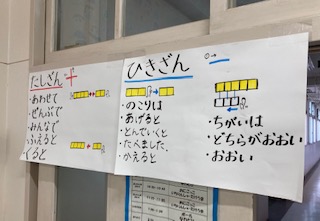 たしざん +
・あわせて
・ぜんぶで
・みんなで
・ふえると
・くると
ひきざん
・のこりは
・あげると
・とんでいくと
・たべました
・かえると
・ちがいは
・どちらがおおい
・おおい